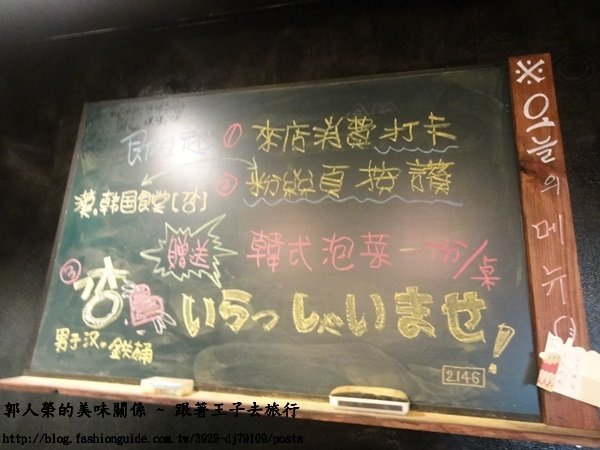 即日起 ① 來店消費打卡
② 粉絲頁按讚
漢。韓国食堂【잠】
贈送 韓式泡菜一份/桌
③ 杏鳥 いらっしゃいませ!
男子汉。鉄桶
2146
※오늘의 메뉴
郭人榮的美味關係 ~ 跟著王子去旅行
http://blog.fashionguide.com.tw/3929-dj79109/posts